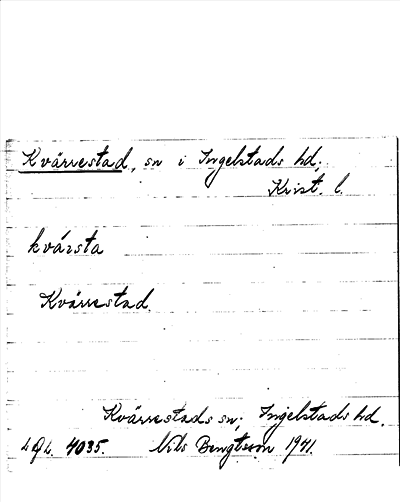 Kvärrestad, sn i Ingelstads hd,
Krist. l.
kvársta
Kvärrestad.
Kvärrestads sn; Ingelstads hd.
4035. Nils Bengtsson 1941.